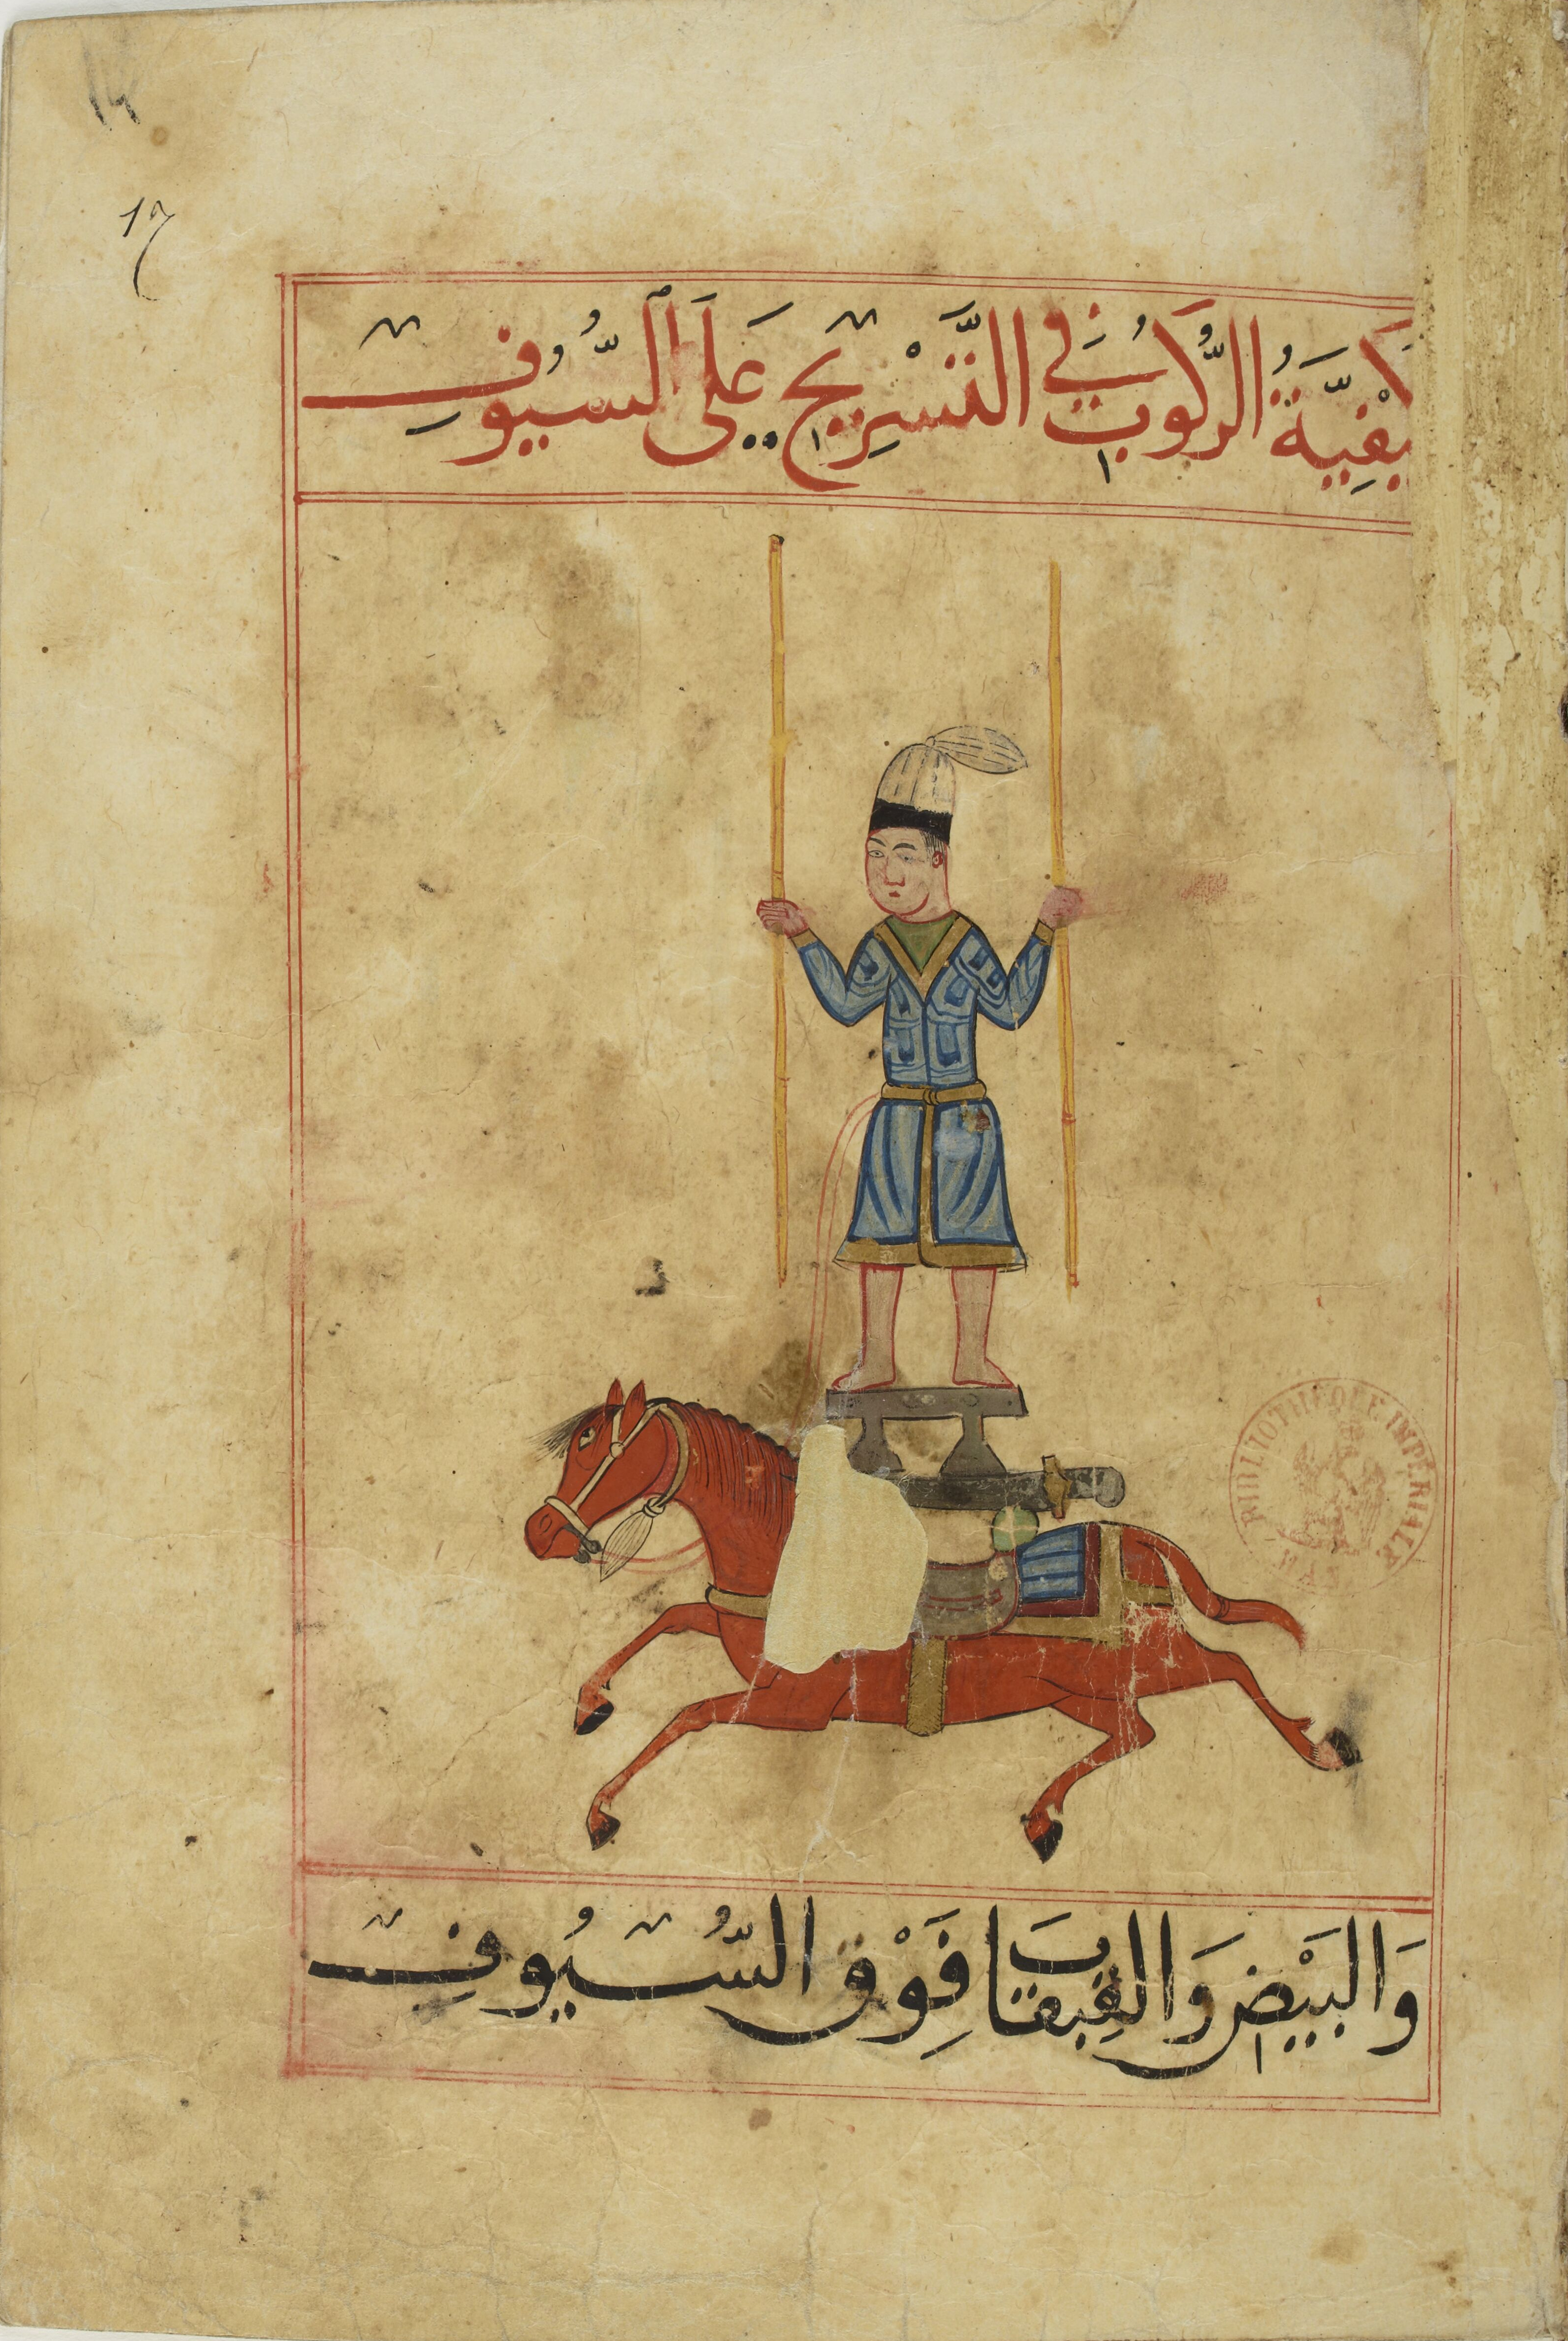 17
كَيْفِيَّةُ الرُّكُوبُ فِي التَّسْرِيحِ عَلَى السُّيُوفِ
BIBLIOTHÈQUE IMPÉRIALE
وَالبَيْضِ وَالقِبقَاب فَوْق السُّيُوفِ